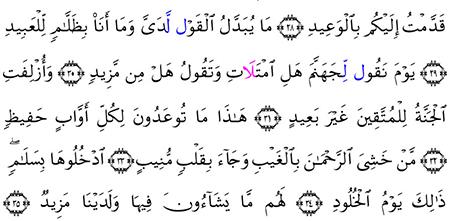 قَدَّمْتُ إِلَيْكُم بِالْوَعِيدِ ﴿٢٨﴾ مَا يُبَدَّلُ الْقَوْل لَّدَىَّ وَمَا أَنَا۠ بِظَلَّـٰمٍ لِّلْعَبِيدِ
﴿٢٩﴾ يَوْمَ نَقُول لِّجَهَنَّمَ هَلِ امْتَلَاتِ وَتَقُولُ هَلْ مِن مَّزِيدٍ ﴿٣٠﴾ وَأُزْلِفَتِ
الْجَنَّةُ لِلْمُتَّقِينَ غَيْرَ بَعِيدٍ ﴿٣١﴾ هَـٰذَا مَا تُوعَدُونَ لِكُلِّ أَوَّابٍ حَفِيظٍ
﴿٣٢﴾ مَّنْ خَشِىَ الرَّحْمَـٰنَ بِالْغَيْبِ وَجَآءَ بِقَلْبٍ مُّنِيبٍ ﴿٣٣﴾ ادْخُلُوهَا بِسَلَـٰمٍ ۖ
ذَٰلِكَ يَوْمُ الْخُلُودِ ﴿٣٤﴾ لَهُم مَّا يَشَآءُونَ فِيهَا وَلَدَيْنَا مَزِيدٌ ﴿٣٥﴾